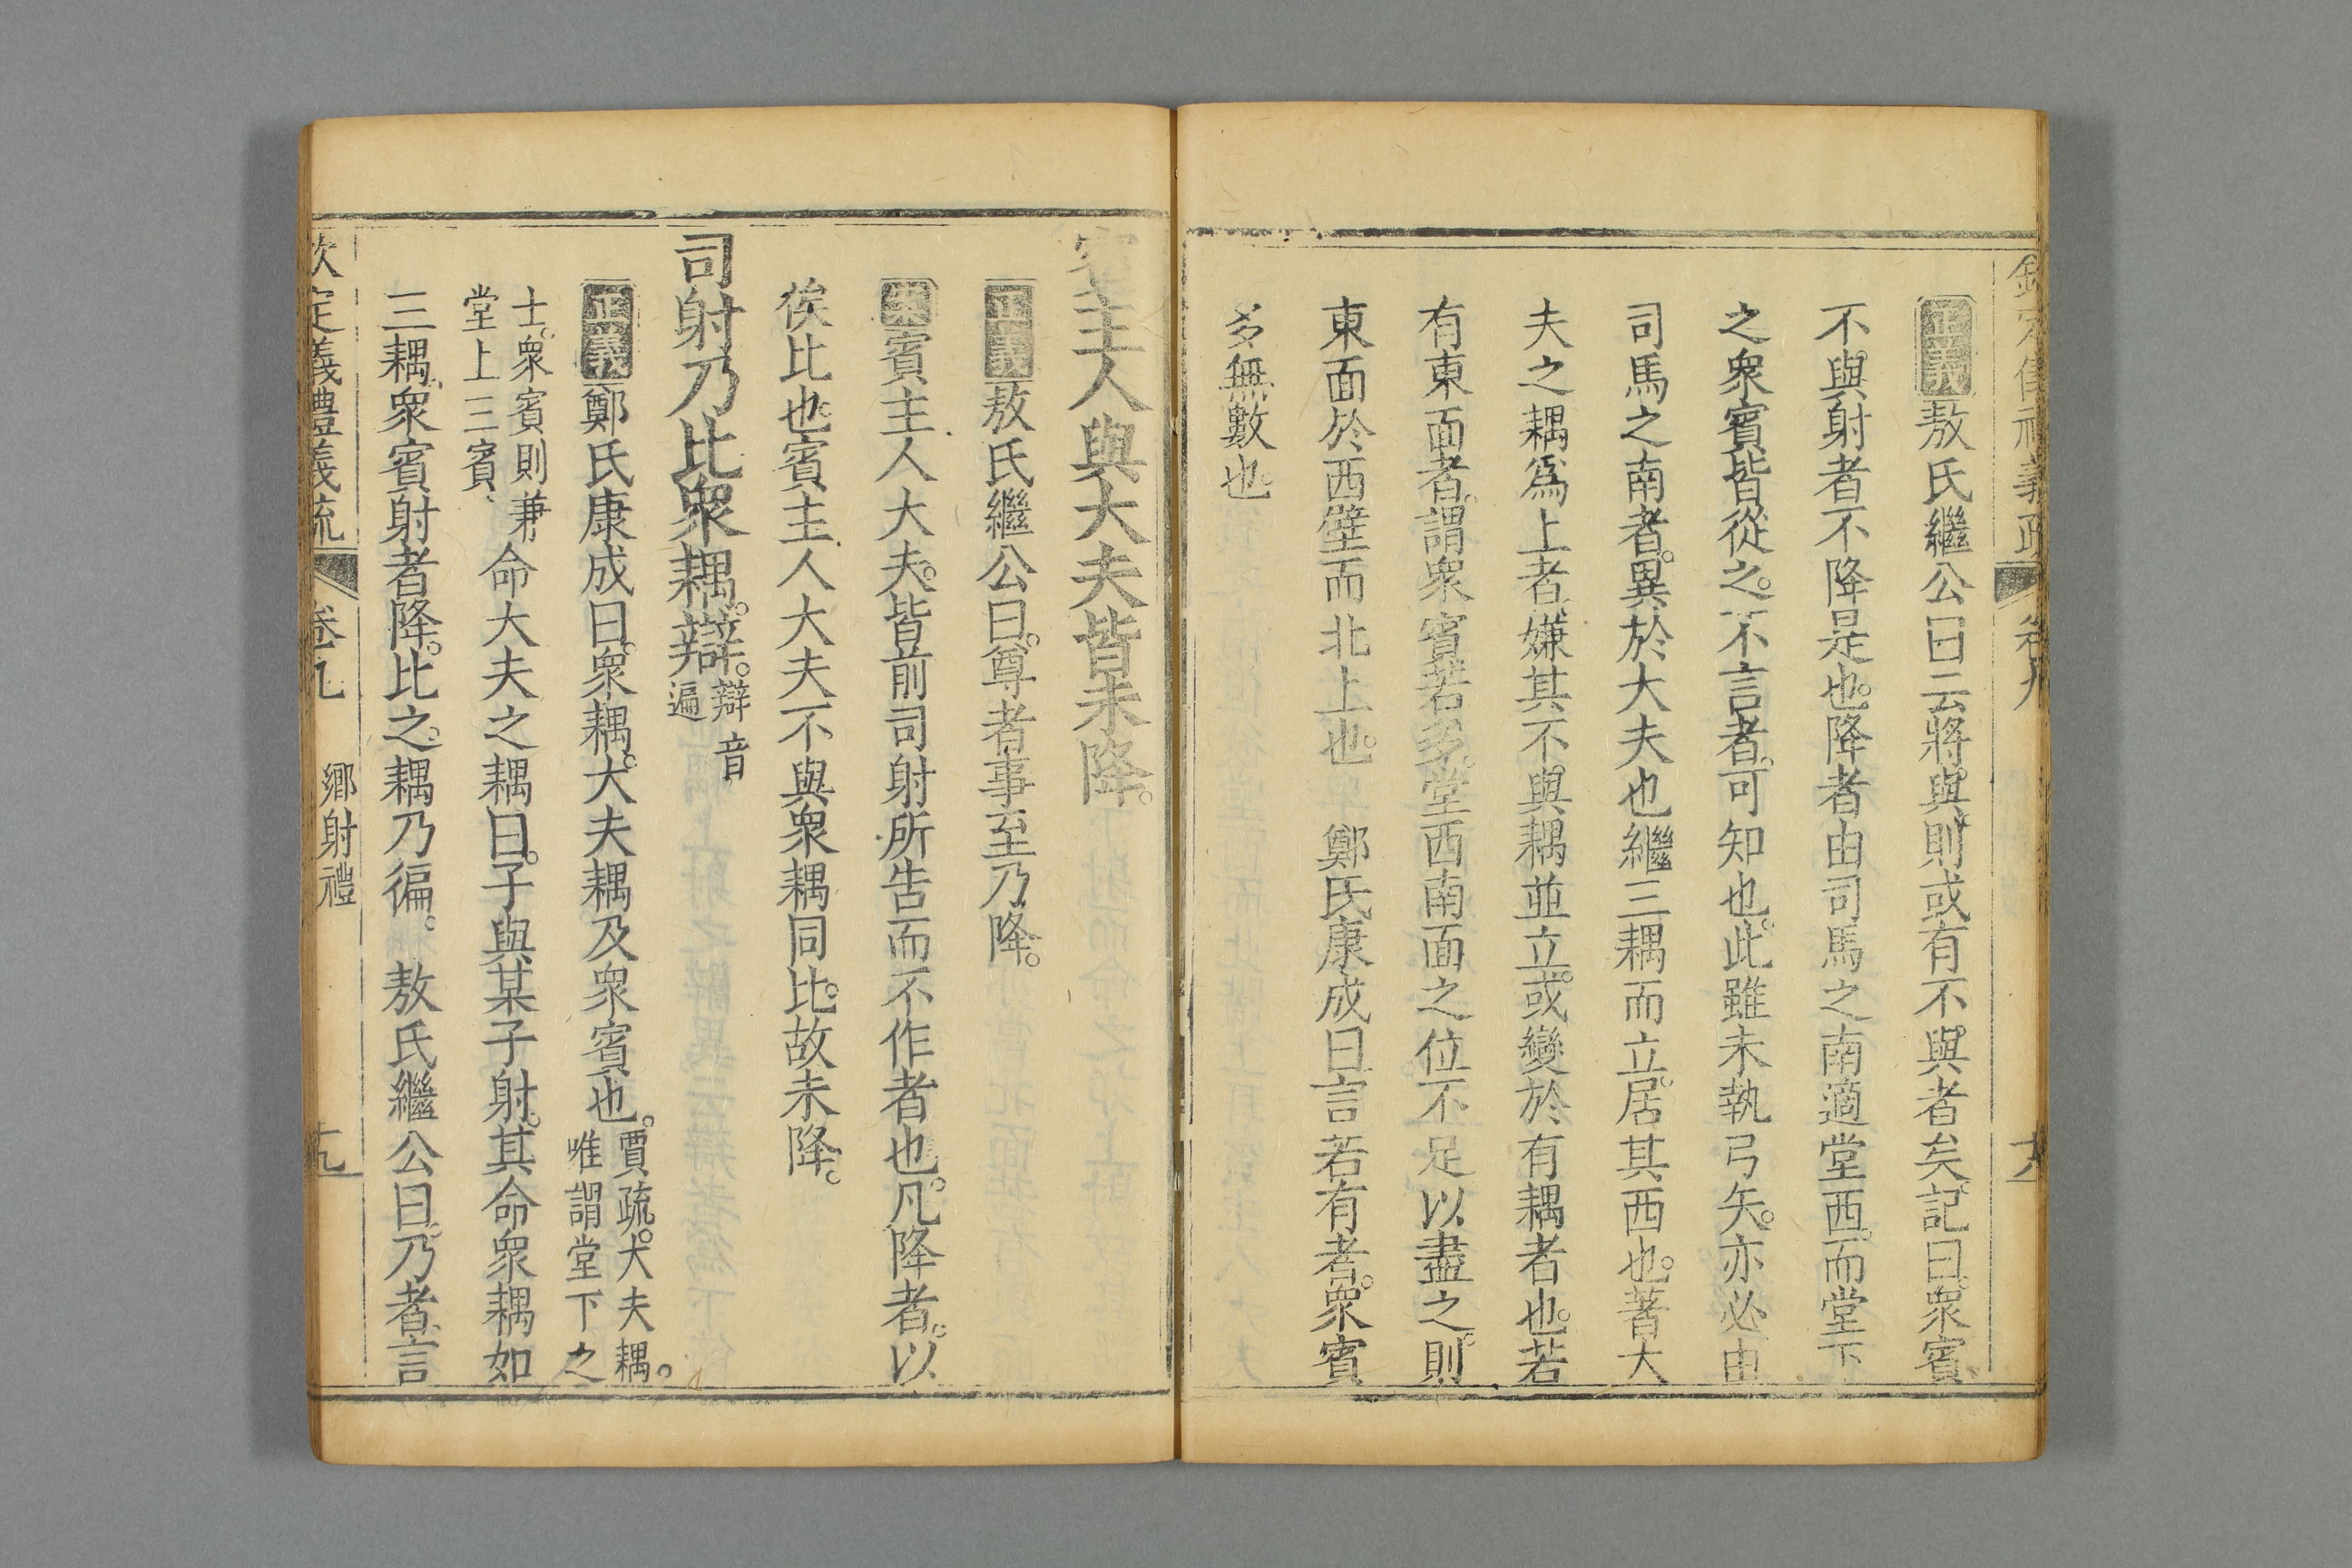 欽定儀禮義疏 卷九 十八
正義敖氏繼公曰云將與則或有不與者矣記曰衆賓
不與射者不降是也。降者由司馬之南適堂西。而堂下
之衆賓皆從之。不言者。可知也。此雖未執弓矢。亦必由
司馬之南者。異於大夫也繼三耦而立。居其西也。著大
夫之耦爲上者。嫌其不與耦並立。或變於有耦者也。若
有東面者。謂衆賓若多。堂西南面之位不足以盡之。則
東面於西壁而北上也。 鄭氏康成曰言若有者。衆賓
多無數也。
賓主人與大夫皆未降。
正義敖氏繼公曰。尊者事至乃降。
案賓主人大夫。皆前司射所告而不作者也。凡降者。以
俟比也。賓主人大夫不與衆耦同比。故未降。
司射乃比衆耦。辯。辯音
遍
正義鄭氏康成曰。衆耦。大夫耦及衆賓也。賈疏。大夫耦。
唯謂堂下之
士。衆賓則兼
堂上三賓、命大夫之耦曰。子與某子射。其命衆耦如
三耦。衆賓射者降。比之。耦乃徧。 敖氏繼公曰。乃者。言
欽定義禮義疏 卷九 鄉射禮 十九